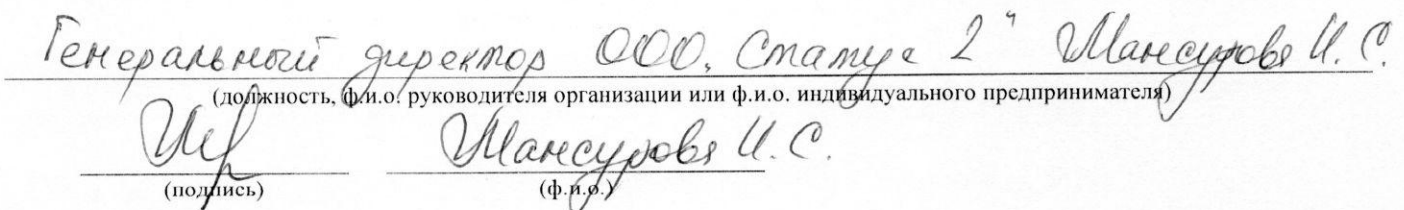 Генеральный директор ООО „Статус 2" Мансурова И. С.
(должность, ф.и.о. руководителя организации или ф.и.о. индивидуального предпринимателя)
Мансурова И. С.
(подпись) (ф.и.о.)